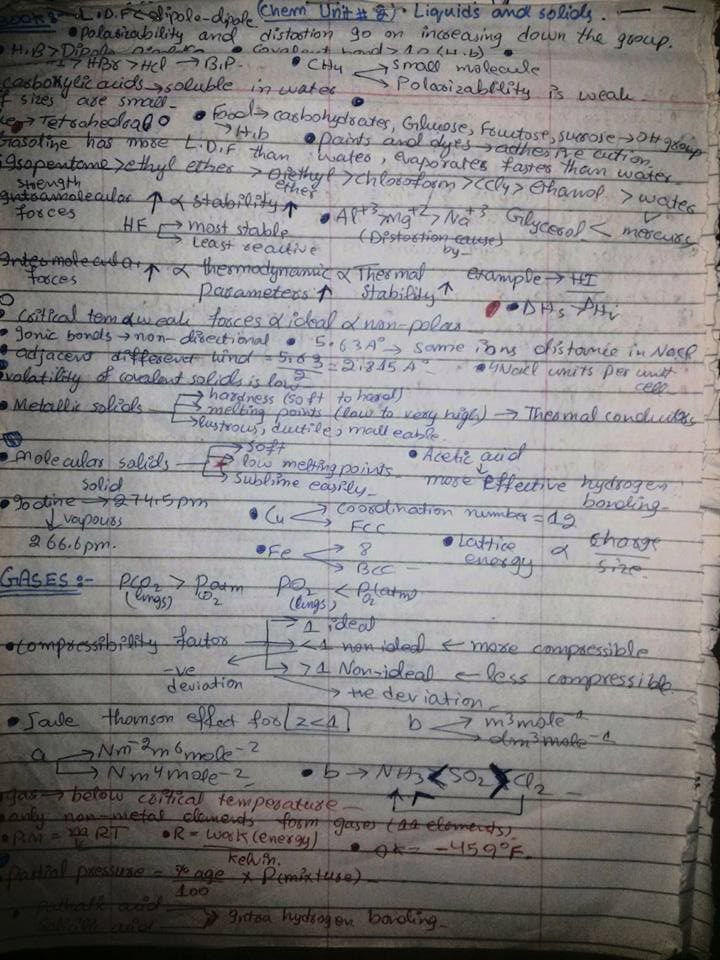 L.D.F < dipole-dipole (Chem Unit # 8) • Liquids and solids.
• Polarizability and distortion go on increasing down the group.
• H.B > Dipole
> HBr > HCl → B.P. • CH4 small molecule
Polarizability is weak.
carboxylic acids → soluble in water
sizes are small
Tetrahedral • Food → carbohydrates, Glucose, Fructose, sucrose → OH group
H.b • paints and dyes → adhesive action
Gasoline has more L.D.F than water, evaporates faster than water
isopentane > ethyl ether > Diethyl ether > chloroform > CCl4 > ethanol > water
strength
Intramolecular forces ↑ α stability ↑ • Al+3 > Mg+2 > Na+3 Glycerol < mercury
HF most stable (Distortion cause) by
Least reactive
Intermolecular forces ↑ α thermodynamic parameters ↑ α Thermal stability ↑ example → HI
• ΔHs > ΔHi
• critical tem α weak forces α ideal α non-polar
• Ionic bonds → non-directional • 5.63A° → same ions distance in NaCl
• adjacent different kind = 5.63/2 = 2.815A° • 4NaCl units per unit cell
volatility of covalent solids is low
• Metallic solids hardness (soft to hard)
melting points (low to very high) → Thermal conductors
lustrous, ductile, malleable.
• molecular solids soft
low melting points
Sublime easily
• Acetic acid
more effective hydrogen bonding
solid
• Iodine → 274.5pm
vapours
266.6pm.
• Cu coordination number = 12
FCC
• Fe 8
BCC
• Lattice energy α charge/size
GASES :-
PCO2 (lungs) > Patm CO2 PO2 (lungs) < P(atm) O2
• Compressibility factor 1 ideal
< 1 non ideal ← more compressible
> 1 Non-ideal ← less compressible
-ve deviation
+ve deviation
• Joule thomson effect for z<1 b m3mole-1
dm3mole-1
a Nm-2m6mole-2
Nm4mole-2 • b → NH3 < SO2 > Cl2
gas → below critical temperature
• only non-metal elements form gases (11 elements)
• R = work(energy)/kelvin. • OK = -459°F.
Partial pressure = %age/100 × P(mixture)
intra hydrogen bonding